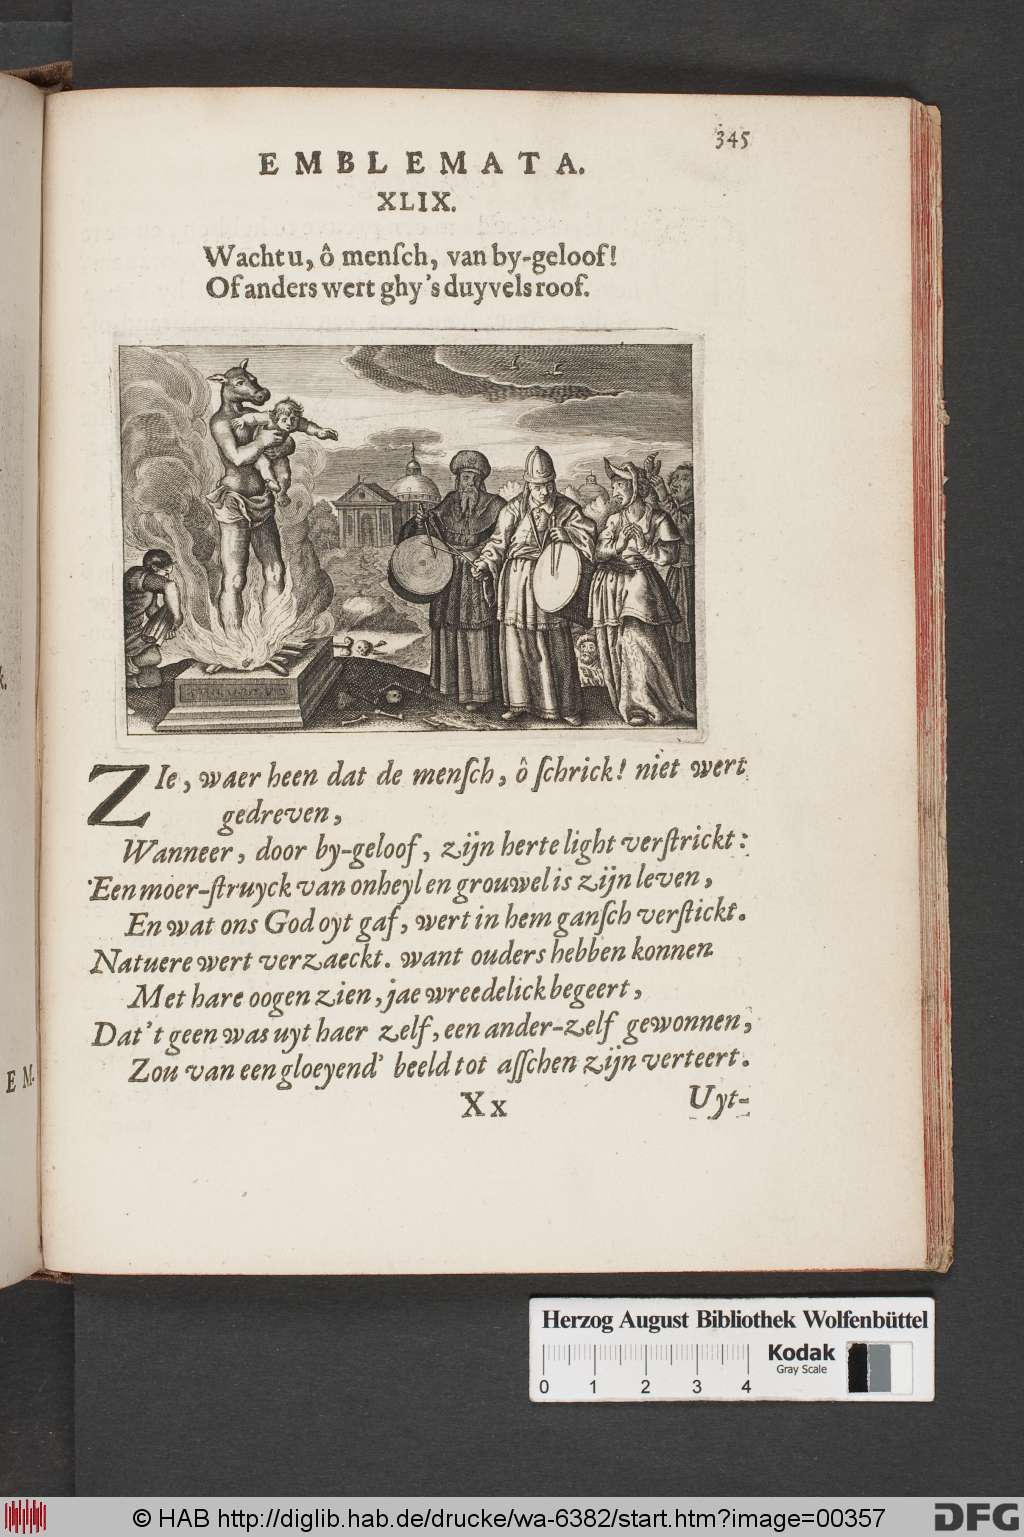 345
EMBLEMATA.
XLIX.
Wacht u, ô menſch, van by-geloof!
Of anders wert ghy 's duyvels roof.
ZIe, waer heen dat de menſch, ô ſchrick! niet wert
gedreven,
Wanneer, door by-geloof, zijn herte light verſtrickt:
Een moer-ſtruyck van onheyl en grouwel is zijn leven,
En wat ons God oyt gaf, wert in hem ganſch verſtickt.
Natuere wert verzaeckt. want ouders hebben konnen
Met hare oogen zien, jae wreedelick begeert,
Dat 't geen was uyt haer zelf, een ander-zelf gewonnen,
Zou van een gloeyend' beeld tot aſſchen zijn verteert.
Xx
Uyt-
E M.
Herzog August Bibliothek Wolfenbüttel
Kodak
Gray Scale
0 1 2 3 4
© HAB http://diglib.hab.de/drucke/wa-6382/start.htm?image=00357
DFG